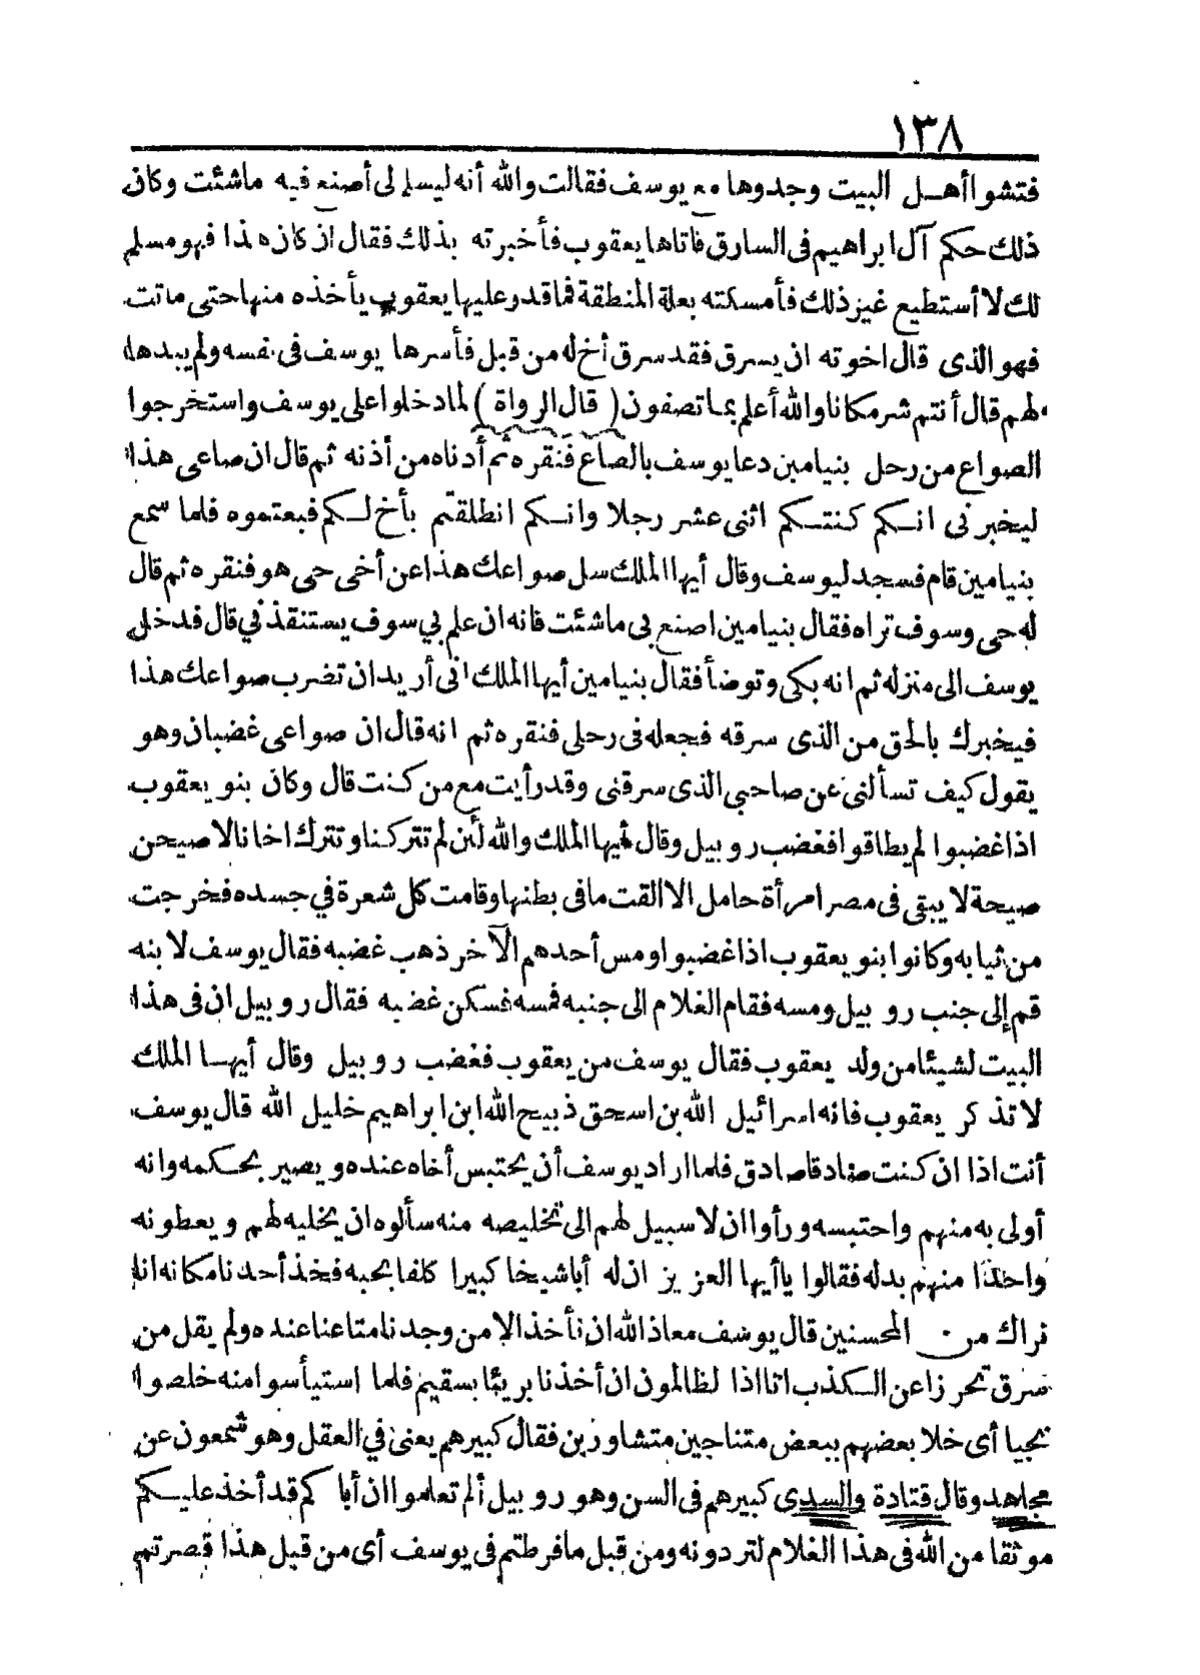 ١٣٨
فتشوا أهل البيت وجدوها مع يوسف فقالت والله أنه ليسلم لى أصنع فيه ماشئت وكان
ذلك حكم آل ابراهيم فى السارق فأتاها يعقوب فأخبرته بذلك فقال ان كان هذا فهو مسلم
لك لا أستطيع غير ذلك فأمسكته بعلة المنطقة فما قدر عليها يعقوب يأخذه منها حتى ماتت
فهو الذى قال اخوته ان يسرق فقد سرق أخ له من قبل فأسرها يوسف فى نفسه ولم يبدها
لهم قال أنتم شر مكانا والله أعلم بما تصفون (قال الرواة) لما دخلوا على يوسف واستخرجوا
الصواع من رحل بنيامين دعا يوسف بالصاع فنقره ثم أدناه من أذنه ثم قال ان صاعى هذا
ليخبرنى انكم كنتكم اثنى عشر رجلا وانكم انطلقتم بأخ لكم فبعتموه فلما سمع
بنيامين قام فسجد ليوسف وقال أيها الملك سل صواعك هذا عن أخى حى هو فنقره ثم قال
له حى وسوف تراه فقال بنيامين اصنع بى ماشئت فانه ان علم بي سوف يستنقذني قال فدخل
يوسف الى منزله ثم انه بكى وتوضأ فقال بنيامين أيها الملك انى أريد ان تضرب صواعك هذا
فيخبرك بالحق من الذى سرقه فجعله فى رحلى فنقره ثم انه قال ان صواعى غضبان وهو
يقول كيف تسألنى عن صاحبى الذى سرقنى وقد رأيت مع من كنت قال وكان بنو يعقوب
اذا غضبوا لم يطاقوا فغضب روبيل وقال أيها الملك والله لئن لم تتركنا وتترك اخانا لاصيحن
صيحة لا يبقى فى مصر امرأة حامل الا القت مافى بطنها وقامت كل شعرة في جسده فخرجت
من ثيابه وكانوا بنو يعقوب اذا غضبوا ومس أحدهم الآخر ذهب غضبه فقال يوسف لابنه
قم إلى جنب روبيل ومسه فقام الغلام الى جنبه فمسه فسكن غضبه فقال روبيل ان فى هذا
البيت لشيئا من ولد يعقوب فقال يوسف من يعقوب فغضب روبيل وقال أيها الملك
لا تذكر يعقوب فانه اسرائيل الله بن اسحق ذبيح الله ابن ابراهيم خليل الله قال يوسف
أنت اذا ان كنت صادقا صادق فلما اراد يوسف أن يحتبس أخاه عنده ويصير بحكمه وانه
أولى به منهم واحتبسه ورأوا ان لا سبيل لهم الى تخليصه منه سألوه ان يخليه لهم ويعطونه
واحدا منهم بدله فقالوا ياأيها العزيز ان له أبا شيخا كبيرا كلفا بحبه فخذ أحدنا مكانه انا
نراك من المحسنين قال يوسف معاذ الله ان نأخذ الا من وجدنا متاعنا عنده ولم يقل من
سرق تحرزا عن الكذب انا اذا لظالمون ان أخذنا بريئا بسقيم فلما استيأسوا منه خلصوا
نجيا أى خلا بعضهم ببعض متناجين متشاورين فقال كبيرهم يعنى في العقل وهو شمعون عن
مجاهد وقال قتادة والسدى كبيرهم فى السن وهو روبيل ألم تعلموا ان أباكم قد أخذ عليكم
موثقا من الله فى هذا الغلام لتردونه ومن قبل مافرطتم فى يوسف أى من قبل هذا قصرتم